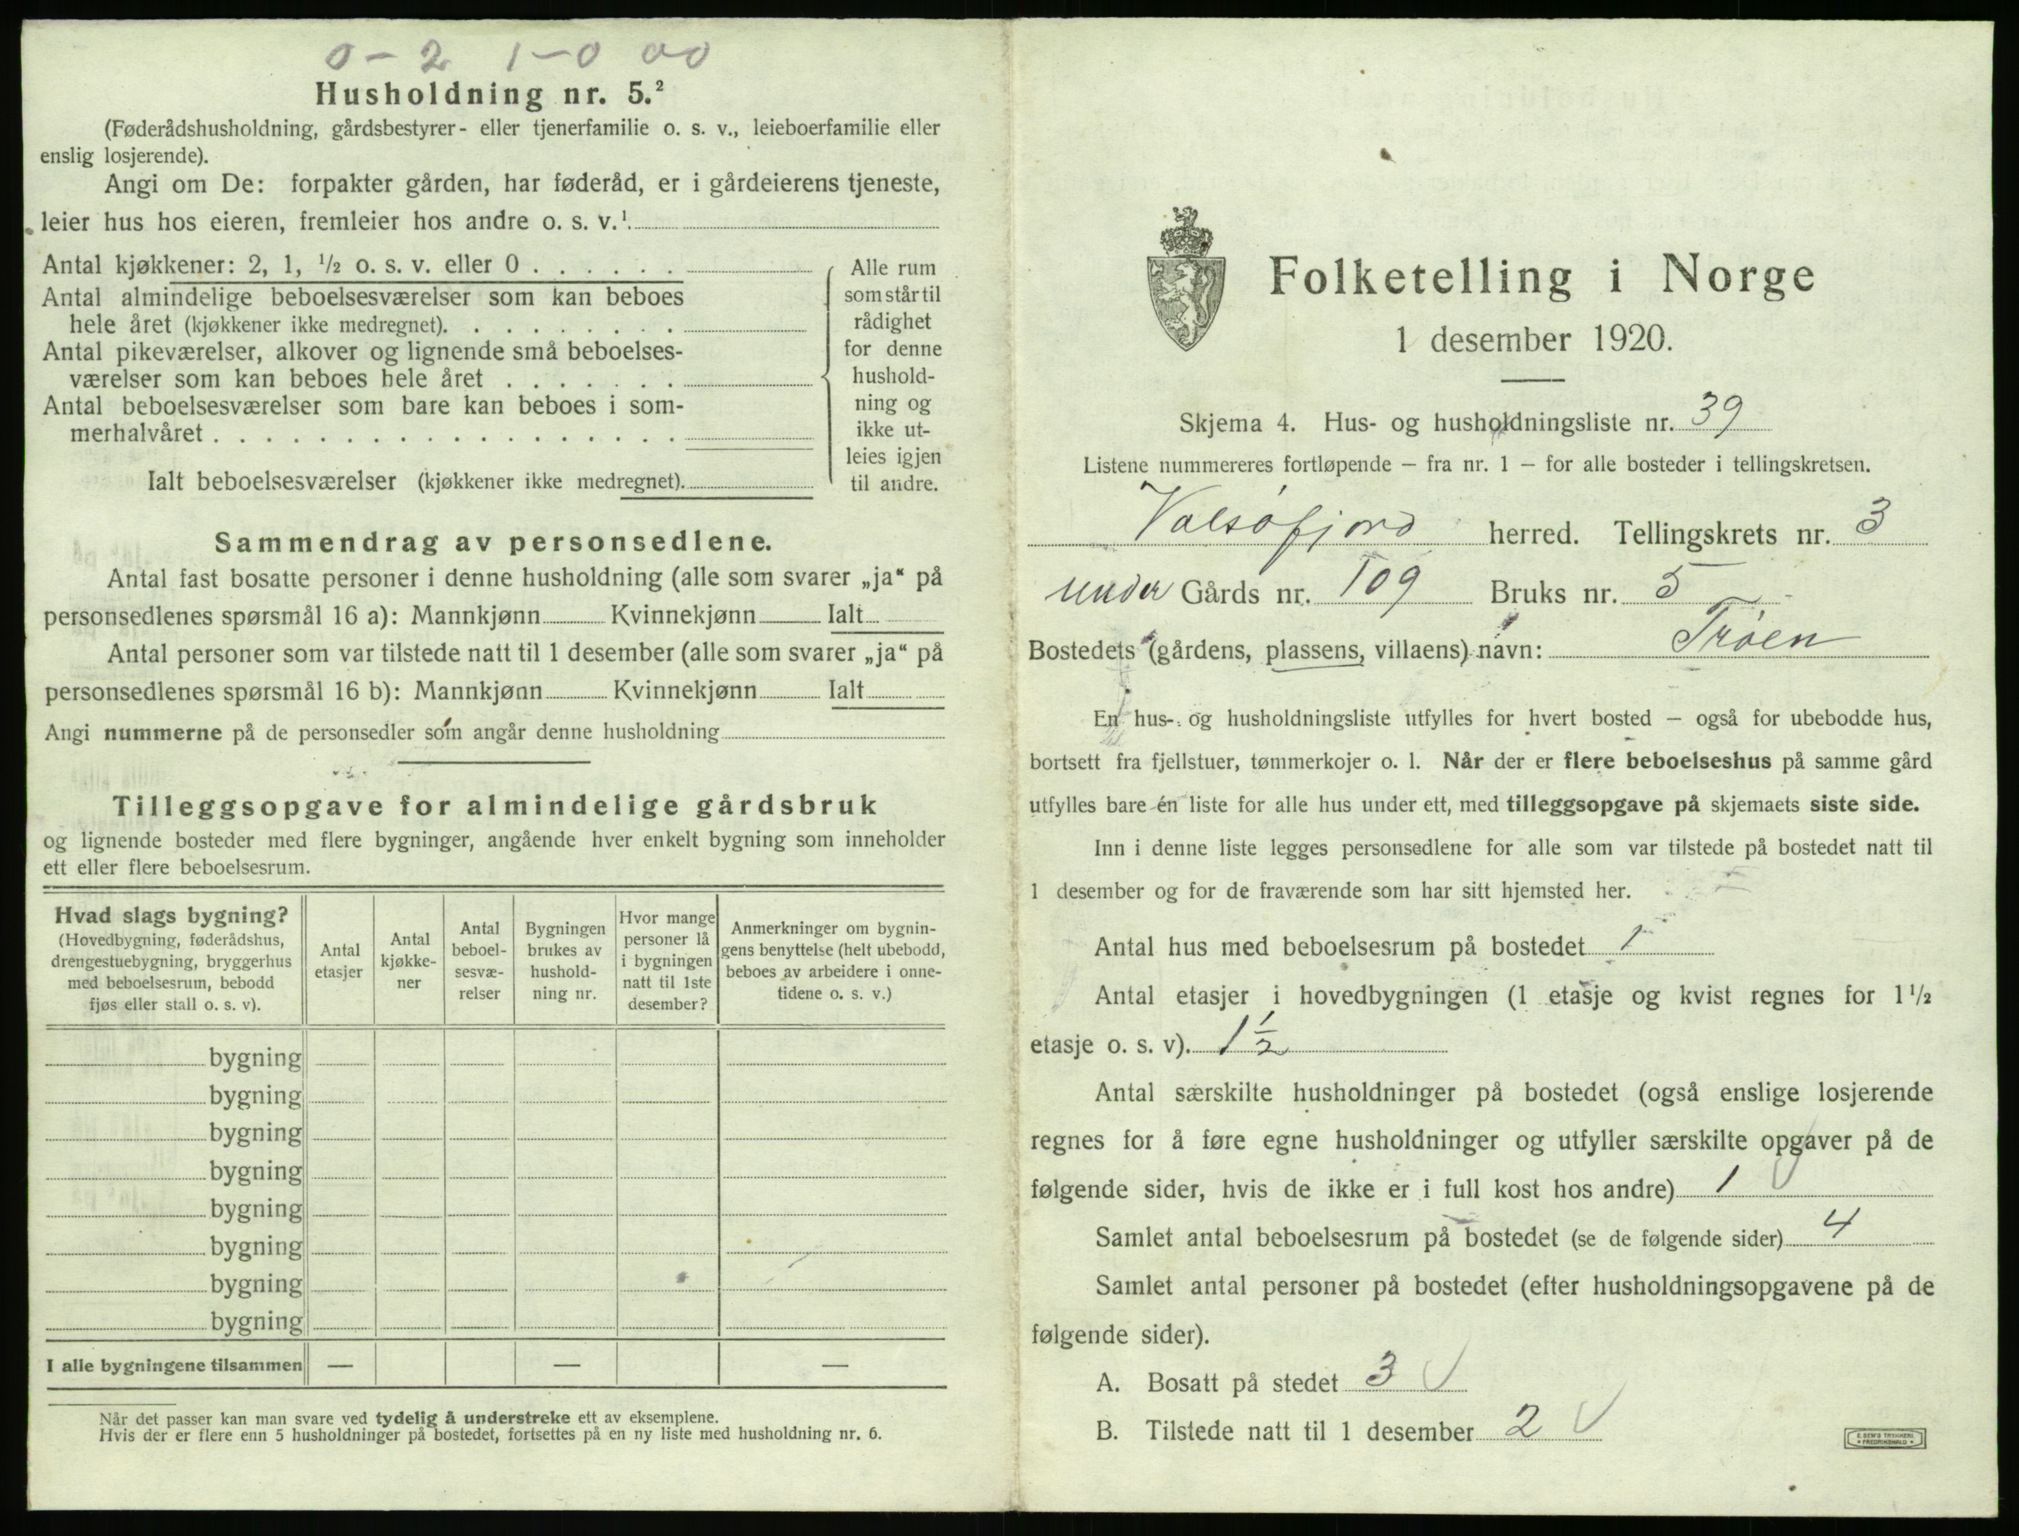 0 - 2 1 - 0 00
Husholdning nr. 5.²
(Føderådshusholdning, gårdsbestyrer- eller tjenerfamilie o. s. v., leieboerfamilie eller
enslig losjerende).
Angi om De: forpakter gården, har føderåd, er i gårdeierens tjeneste,
leier hus hos eieren, fremleier hos andre o. s. v.¹
Antal kjøkkener: 2, 1, ½ o. s. v. eller 0 . . . . . .
Antal almindelige beboelsesværelser som kan beboes
hele året (kjøkkener ikke medregnet). . . . . . . . .
Antal pikeværelser, alkover og lignende små beboelses-
værelser som kan beboes hele året . . . . . . .
Antal beboelsesværelser som bare kan beboes i som-
merhalvåret . . . . . . . . . . . . . . . . . .
Ialt beboelsesværelser (kjøkkener ikke medregnet).
Alle rum
som står til
rådighet
for denne
hushold-
ning og
ikke ut-
leies igjen
til andre.
Sammendrag av personsedlene.
Antal fast bosatte personer i denne husholdning (alle som svarer „ja“ på
personsedlenes spørsmål 16 a): Mannkjønn Kvinnekjønn Ialt
Antal personer som var tilstede natt til 1 desember (alle som svarer „ja“ på
personsedlenes spørsmål 16 b): Mannkjønn Kvinnekjønn Ialt
Angi nummerne på de personsedler som angår denne husholdning
Tilleggsopgave for almindelige gårdsbruk
og lignende bosteder med flere bygninger, angående hver enkelt bygning som inneholder
ett eller flere beboelsesrum.
Hvad slags bygning?
(Hovedbygning, føderådshus,
drengestuebygning, bryggerhus
med beboelsesrum, bebodd
fjøs eller stall o. s. v).
Antal
etasjer
Antal
kjøkke-
ner
Antal
beboel-
sesvæ-
relser
Bygningen
brukes av
hushold-
ning nr.
Hvor mange
personer lå
i bygningen
natt til 1ste
desember?
Anmerkninger om bygnin-
gens benyttelse (helt ubebodd,
beboes av arbeidere i onne-
tidene o. s. v.)
bygning
bygning
bygning
bygning
bygning
bygning
bygning
bygning
I alle bygningene tilsammen — — —
Når det passer kan man svare ved tydelig å understreke ett av eksemplene.
Hvis der er flere enn 5 husholdninger på bostedet, fortsettes på en ny liste med husholdning nr. 6.
Folketelling i Norge
1 desember 1920.
Skjema 4. Hus- og husholdningsliste nr. 39
Listene nummereres fortløpende – fra nr. 1 – for alle bosteder i tellingskretsen.
Valsøfjord herred. Tellingskrets nr. 3
under Gårds nr. 109 Bruks nr. 5
Bostedets (gårdens, plassens, villaens) navn: Trøen
En hus- og husholdningsliste utfylles for hvert bosted – også for ubebodde hus,
bortsett fra fjellstuer, tømmerkojer o. l. Når der er flere beboelseshus på samme gård
utfylles bare én liste for alle hus under ett, med tilleggsopgave på skjemaets siste side.
Inn i denne liste legges personsedlene for alle som var tilstede på bostedet natt til
1 desember og for de fraværende som har sitt hjemsted her.
Antal hus med beboelsesrum på bostedet 1
Antal etasjer i hovedbygningen (1 etasje og kvist regnes for 1½
etasje o. s. v). 1½
Antal særskilte husholdninger på bostedet (også enslige losjerende
regnes for å føre egne husholdninger og utfyller særskilte opgaver på de
følgende sider, hvis de ikke er i full kost hos andre) 1
Samlet antal beboelsesrum på bostedet (se de følgende sider) 4
Samlet antal personer på bostedet (efter husholdningsopgavene på de
følgende sider).
A. Bosatt på stedet 3
B. Tilstede natt til 1 desember 2